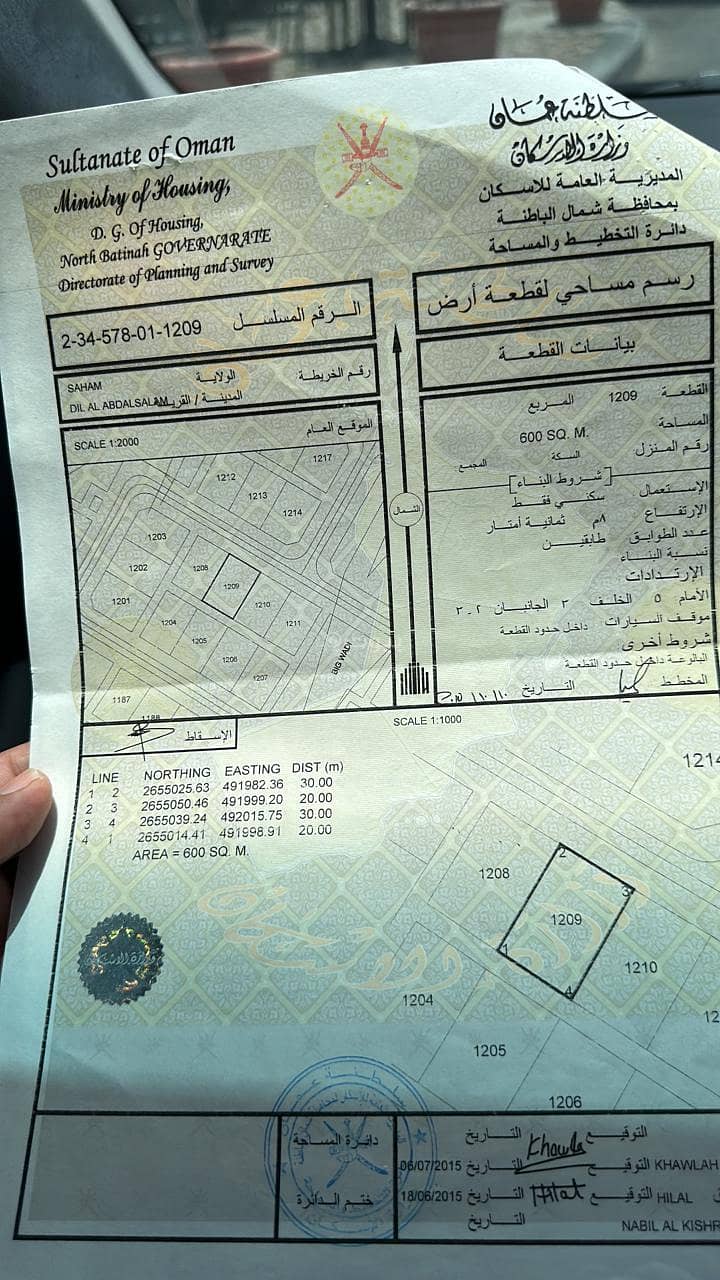 Sultanate of Oman
Ministry of Housing,
D. G. Of Housing,
North Batinah GOVERNARATE
Directorate of Planning and Survey
سلطنة عمان
وزارة الإسكان
المديرية العامة للاسكان
بمحافظة شمال الباطنة
دائرة التخطيط والمساحة
رسم مساحي لقطعة أرض
2-34-578-01-1209 الرقم المسلسل
SAHAM الولاية رقم الخريطة
DIL AL ABDALSALAM المدينة / القرية
SCALE 1:2000 الموقع العام
1217
1212
1213
1214
1203
1202
1208
1209
1201
1210
1204
1211
1205
1206
1207
1187
1188
BIG WADI
الشمال
بيانات القطعة
القطعة 1209 المربع
المساحة 600 SQ. M.
رقم المنزل السكة المجمع
شروط البناء
الإستعمال سكني فقط
الإرتفاع ٨م ثمانية أمتار
عدد الطوابق طابقين
نسبة البناء
الإرتدادات
الأمام ٥ الخلف ٣ الجانبان ٢-٣
موقف السيارات داخل حدود القطعة
شروط أخرى
البالوعة داخل حدود القطعة
المخطط التاريخ
الإسقاط
SCALE 1:1000
LINE NORTHING EASTING DIST (m)
1 2 2655025.63 491982.36 30.00
2 3 2655050.46 491999.20 20.00
3 4 2655039.24 492015.75 30.00
4 1 2655014.41 491998.91 20.00
AREA = 600 SQ. M.
1214
1208
2
3
1209
1
4
1210
1204
1205
1206
وزارة الاسكان
دائرة المساحة
ختم الدائرة
التوقيع Khawla التاريخ
KHAWLAH التوقيع التاريخ 06/07/2015
HILAL التوقيع Hilal التاريخ 18/06/2015
NABIL AL KISHR التاريخ